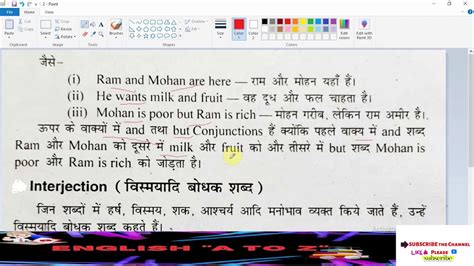 2 - Paint
Select
Brushes
Size
Color
1
Color
2
Edit
colors
Edit with
Paint 3D
जैसे–
(i) Ram and Mohan are here – राम और मोहन यहाँ हैं।
(ii) He wants milk and fruit – वह दूध और फल चाहता है।
(iii) Mohan is poor but Ram is rich – मोहन गरीब, लेकिन राम अमीर है।
ऊपर के वाक्यों में and तथा but Conjunctions हैं क्योंकि पहले वाक्य में and शब्द
Ram और Mohan को दूसरे में milk और fruit को और तीसरे में but शब्द Mohan is
poor और Ram is rich को जोड़ता है।
Interjection (विस्मयादि बोधक शब्द)
जिन शब्दों में हर्ष, विस्मय, शक, आश्चर्य आदि मनोभाव व्यक्त किये जाते हैं, उन्हें
विस्मयादि बोधक शब्द कहते हैं।
SUBSCRIBE THE Channel
LIKE PLEASE
subscribe
ENGLISH "A TO Z"